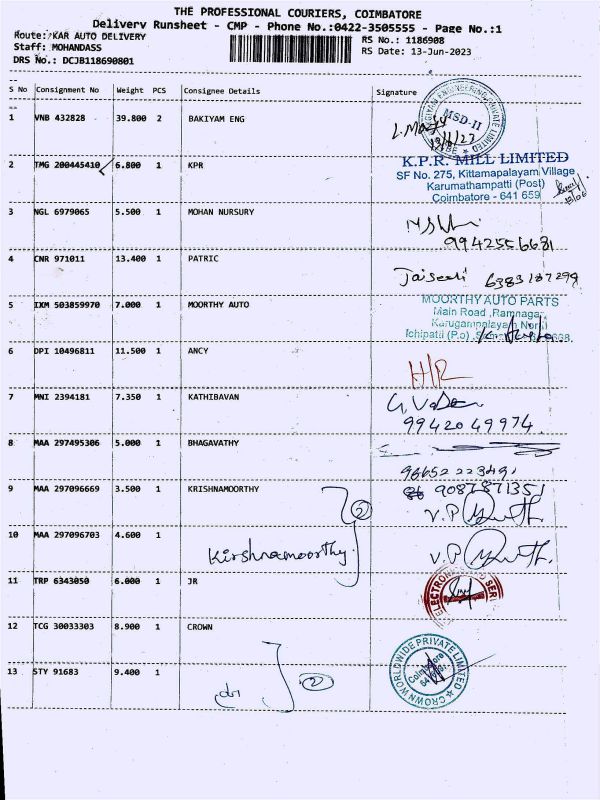 THE PROFESSIONAL COURIERS, COIMBATORE
Delivery Runsheet - CMP - Phone No.:0422-3505555 - Page No.:1
Route: KAR AUTO DELIVERY
RS No.: 1186908
Staff: MOHANDASS
RS Date: 13-Jun-2023
DRS No.: DCJB118690801
S No Consignment No Weight PCS Consignee Details Signature
1 VNB 432828 39.800 2 BAKIYAM ENG
MSD-II
2 TMG 200445410 6.800 1 KPR
K.P.R. MILL LIMITED
SF No. 275, Kittamapalayam Village
Karumathampatti (Post)
Coimbatore - 641 659
3 NGL 6979065 5.500 1 MOHAN NURSURY
9942556681
4 CNR 971011 13.400 1 PATRIC
6383187299
5 IXM 503859970 7.000 1 MOORTHY AUTO
MOORTHY AUTO PARTS
Main Road ,Ramnagar,
Karugampalayam North
Ichipatti (P.o)
6 DPI 10496811 11.500 1 ANCY
HR
7 MNI 2394181 7.350 1 KATHIBAVAN
9942049974
8 MAA 297495306 5.000 1 BHAGAVATHY
9 MAA 297096669 3.500 1 KRISHNAMOORTHY
9087871351
V.P
2
10 MAA 297096703 4.600 1
Kirshnamoorthy
V.P
11 TRP 6343050 6.000 1 JR
12 TCG 30033303 8.900 1 CROWN
CROWN WORLDWIDE PRIVATE LIMITED
Coimbatore
13 STY 91683 9.400 1
2